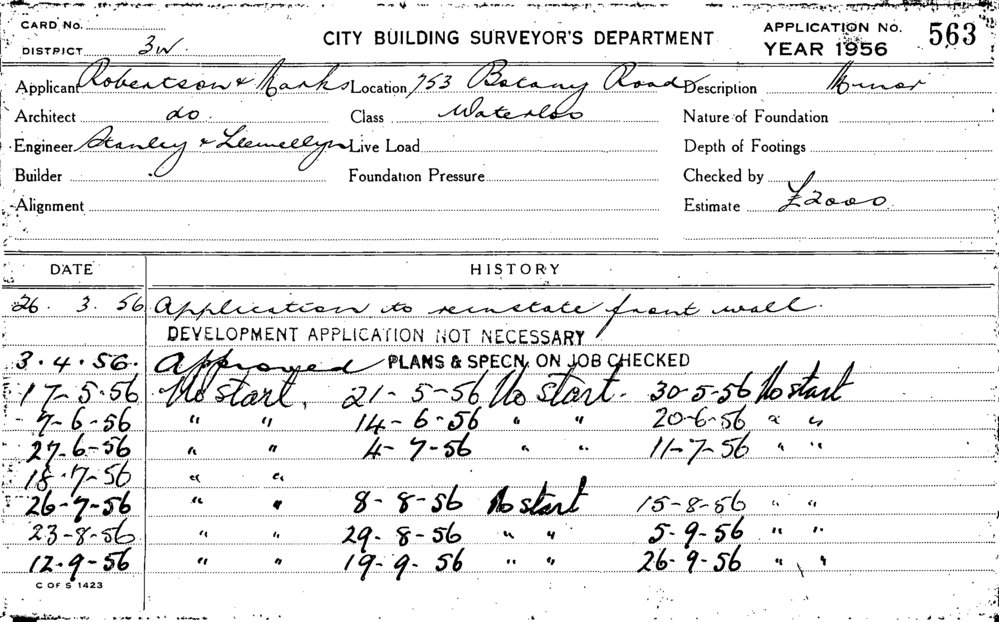 CARD No.
DISTRICT 3W
CITY BUILDING SURVEYOR'S DEPARTMENT
APPLICATION No. 563
YEAR 1956
Applicant Robertson & Marks Location 753 Botany Road Description Minor
Architect do. Class Waterloo Nature of Foundation
Engineer Stanley & Llewellyn Live Load Depth of Footings
Builder Foundation Pressure Checked by
Alignment Estimate £2000
DATE HISTORY
26. 3. 56 Application to reinstate front wall.
DEVELOPMENT APPLICATION NOT NECESSARY
3.4.56. Approved PLANS & SPECN. ON JOB CHECKED
17-5-56 No start. 21-5-56 No start. 30-5-56 No start
7-6-56 " " 14-6-56 " " 20-6-56 " "
27-6-56 " " 4-7-56 " " 11-7-56 " "
18-7-56 " "
26-7-56 " " 8-8-56 No start 15-8-56 " "
23-8-56 " " 29-8-56 " " 5-9-56 " "
12-9-56 " " 19-9-56 " " 26-9-56 " "
C OF S 1423